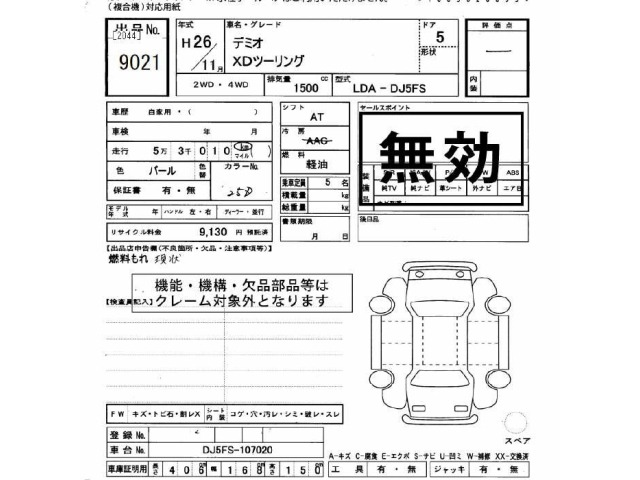 (複合機)対応用紙
出品No. [2044] 9021
年式 H26/11月
車名・グレード デミオ XDツーリング
ドア 5 形状
評価点 —
内装
2WD・4WD 排気量 1500 cc 型式 LDA - DJ5FS
車歴 自家用・( )
シフト AT
セールスポイント
車検 年 月
冷房 AAC
無効
走行 5万 3千 0 1 0 km マイル ( )
燃料 軽油
色 パール 色替 カラーNo. 25D
乗車定員 5 名
装備品 純TV 純ナビ 革シート 外ナビ エアB ABS
保証書 有・無
積載量 kg
総重量 kg
モデル年式 年 ハンドル 左・右 ディーラー・並行
書類期限 月 日
後日品
リサイクル料金 9,130 円 預託済
【出品店申告欄(不良箇所・欠品・注意事項等)】
燃料もれ 現状
機能・機構・欠品部品等は
【検査員記入】 クレーム対象外となります
FW キズ・トビ石・割レX シート内装 コゲ・穴・汚レ・シミ・破レ・スレ
スペア
登録No.
車台No. DJ5FS-107020
A-キズ C-腐食 E-エクボ S-サビ U-凹ミ W-補修 XX-交換済
車庫証明用 長さ 406 幅 168 高さ 150 工具 有・無 ジャッキ 有・無